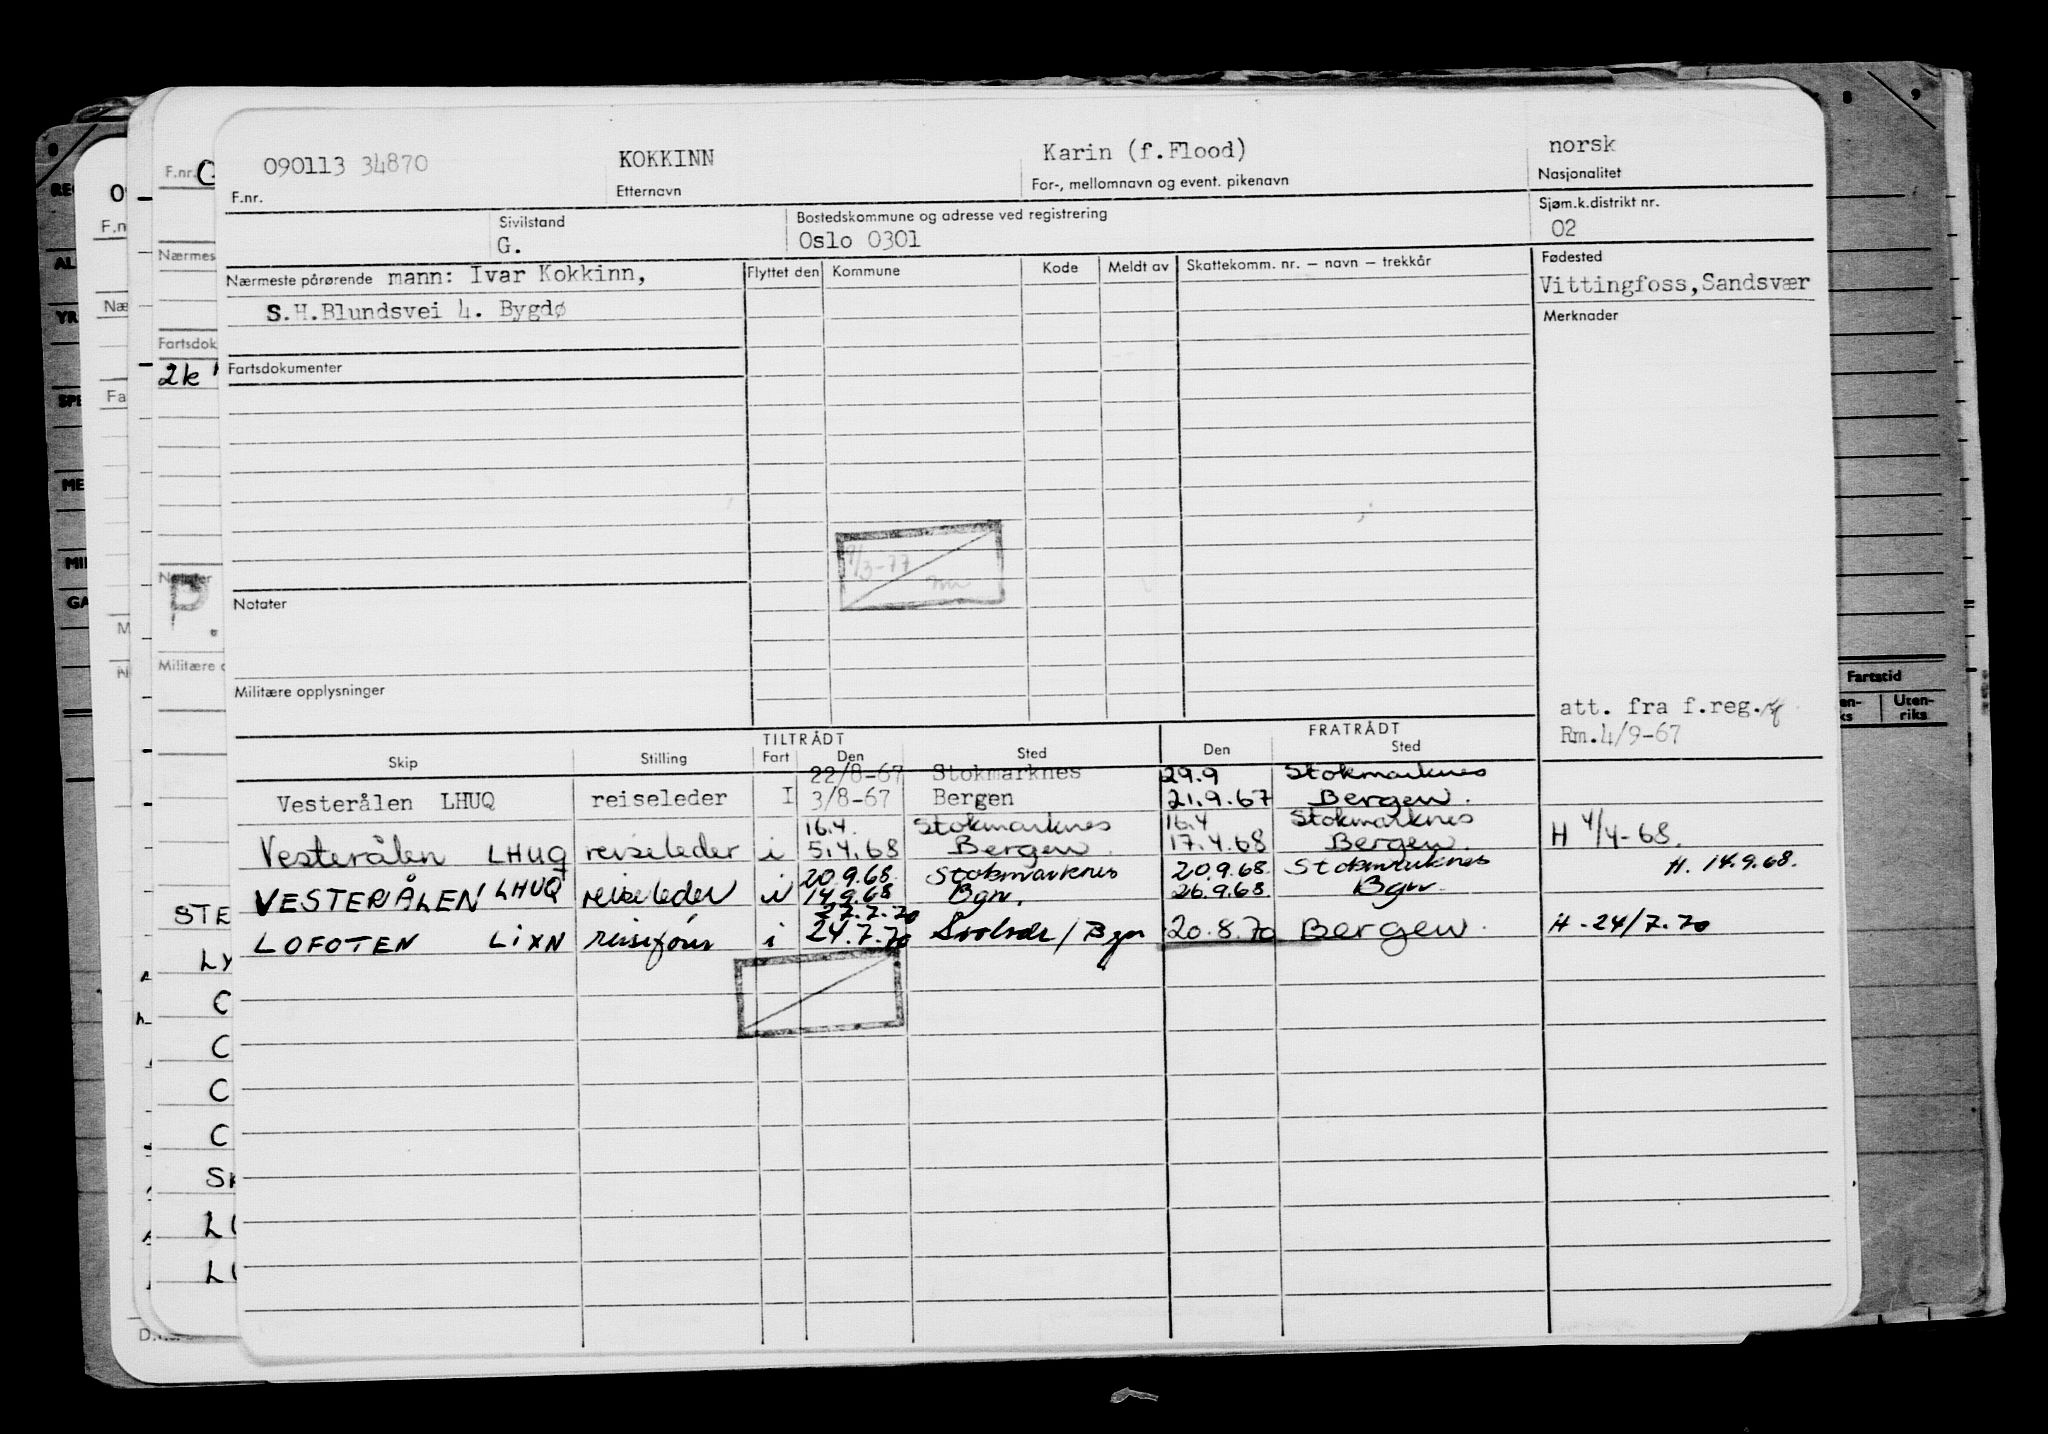 090113 34870 KOKKINN Karin (f.Flood) norsk
F.nr. Etternavn For-, mellomnavn og event. pikenavn Nasjonalitet
Sivilstand Bostedskommune og adresse ved registrering Sjøm.k.distrikt nr.
G. Oslo 0301 02
Nærmeste pårørende mann: Ivar Kokkinn, Flyttet den Kommune Kode Meldt av Skattekomm. nr. – navn – trekkår Fødested
S.H.Blundsvei 4. Bygdø Vittingfoss,Sandsvær
Merknader
Fartsdokumenter
9/3-77
Notater
Militære opplysninger
att. fra f.reg.
Rm.4/9-67
TILTRÅDT FRATRÅDT
Skip Stilling Fart Den Sted Den Sted
22/8-67 Stokmarknes 29.9 Stokmarknes
Vesterålen LHUQ reiseleder I 3/8-67 Bergen 21.9.67 Bergen.
16.4. Stokmarknes 16.4 Stokmarknes
Vesterålen LHUQ reiseleder i 5.4.68 Bergen. 17.4.68 Bergen. H 4/4-68.
20.9.68. Stokmarknes 20.9.68. Stokmarknes H. 14.9.68.
VESTERÅLEN LHUQ reiseleder i 14.9.68 Bgn. 26.9.68. Bgn.
27.7.70
LOFOTEN LIXN i 24.7.70 Svolvær / Bgn 20.8.70 Bergen. H - 24/7.70
F.nr.
Nærmes
Fartsdok
2k
Notater
P.
Militære o
STE
LY
C
C
C
C
SK
F.n
Næ
Fa
M
REG
AL
YR
SPE
ME
MIL
GA
8 9
Fartstid
Uten-
riks